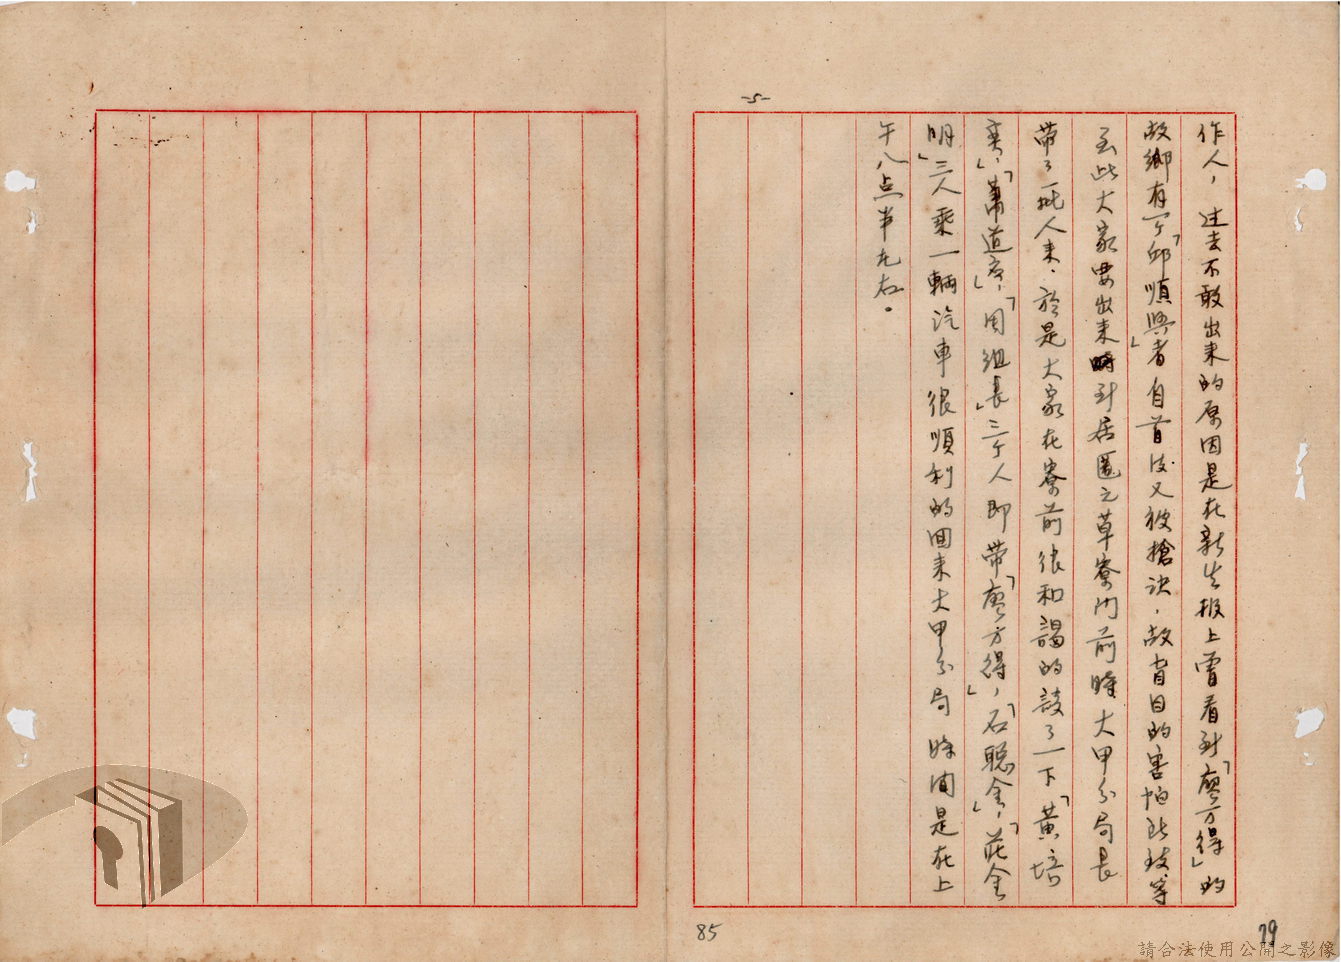 -5-
作人，过去不敢出来的原因是在新生报上曾看到「廖方得」的
故鄉有一个「邱順興」者自首后又被槍决，故盲目的害怕政府
至此大家要出来時到居匿之草寮門前時大甲分局長
带了一批人来，於是大家在寮前很和謁的談了一下「黄培
奕」，「蕭道应」，「周组長」三个人即带「廖方得」，「石聪金」，「莊金
明」三人乘一輛汽車很順利的回来大甲分局時间是在上
午八点半左右。
85
79
請合法使用公開之影像